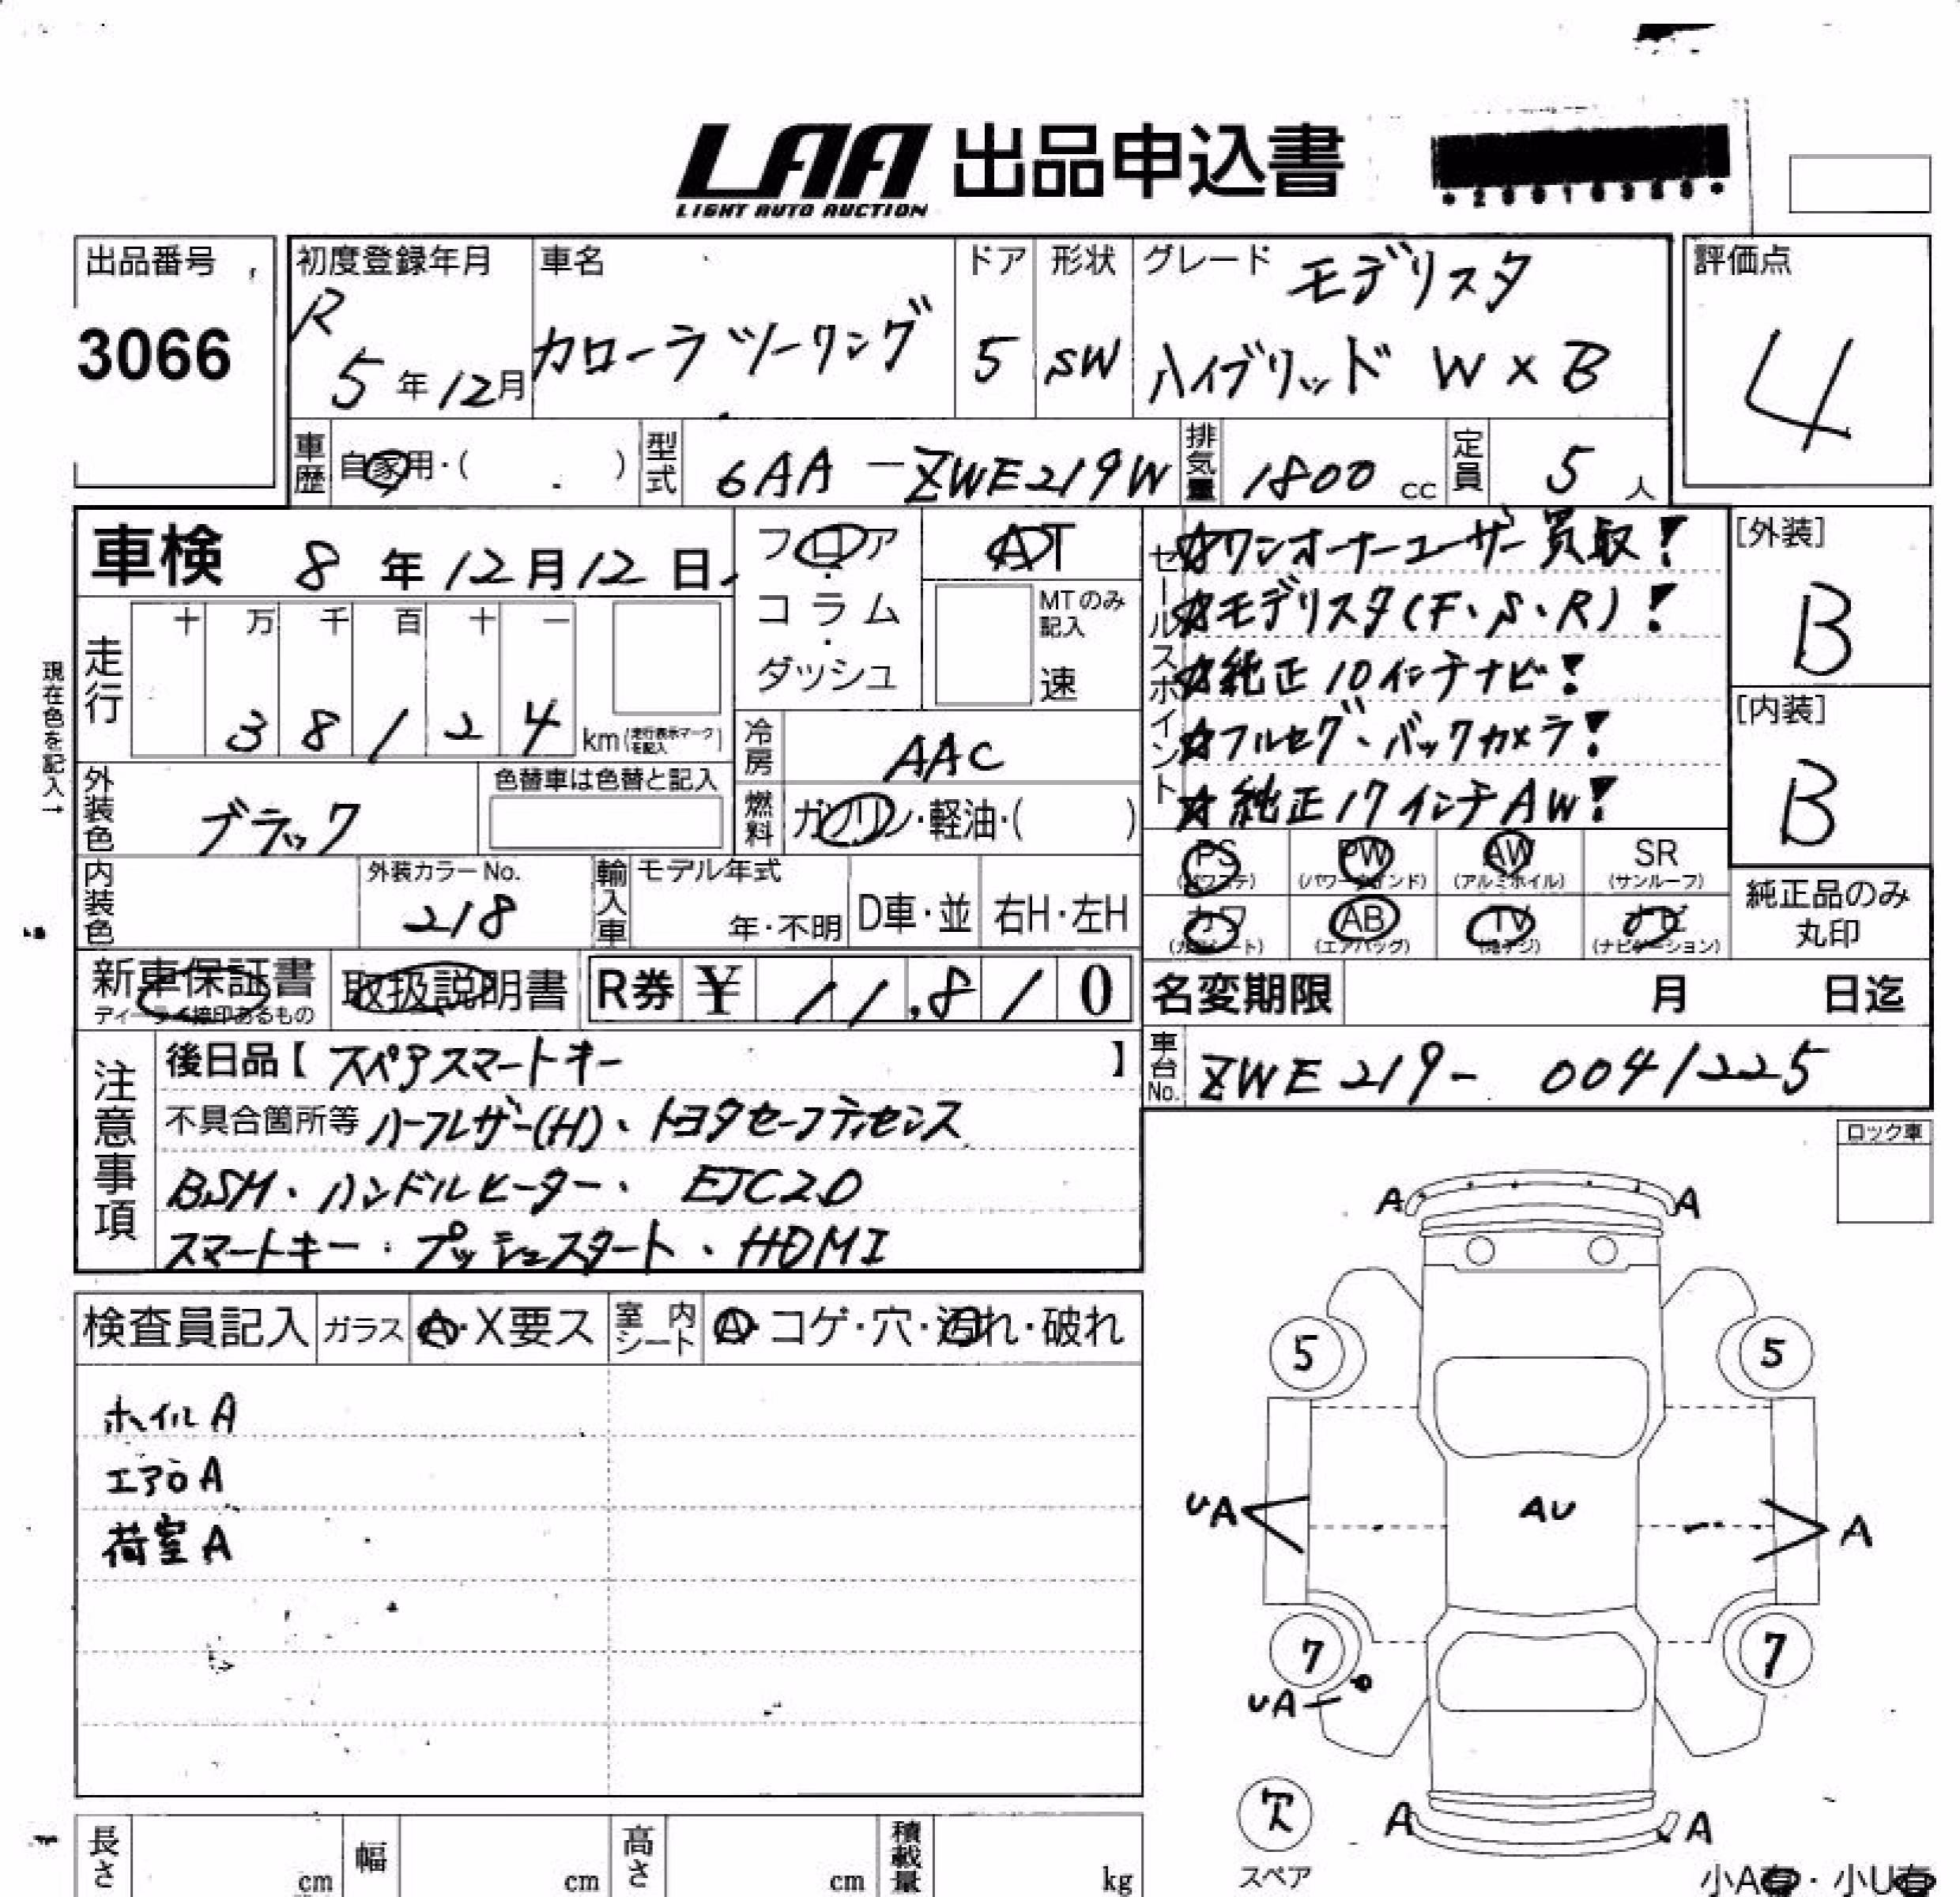 LAA 出品申込書
LIGHT AUTO AUCTION
出品番号
3066
初度登録年月
R
5年12月
車名
カローラツーリング
ドア
5
形状
SW
グレード
モデリスタ
ハイブリッド W×B
評価点
4
車歴 自家用・( )
型式 6AA-ZWE219W
排気量 1800 cc
定員 5人
車検 8年12月12日
フロア・コラム・ダッシュ
AT
MTのみ記入
速
セールスポイント
☆ワンオーナーユーザー買取!
☆モデリスタ(F・S・R)!
☆純正10インチナビ!
☆フルセグ、バックカメラ!
☆純正17インチAW!
[外装]
B
[内装]
B
現在色を記入→
走行
十 万 千 百 十 一
3 8 1 2 4
km(走行表示マークを記入)
冷房 AAC
燃料 ガソリン・軽油・( )
外装色 ブラック
色替車は色替と記入
内装色
外装カラーNo.
218
輸入車
モデル年式
年・不明
D車・並
右H・左H
PS (パワステ)
PW (パワーウインド)
AW (アルミホイル)
SR (サンルーフ)
カワ (カワシート)
AB (エアバッグ)
TV (地デジ)
ナビ (ナビゲーション)
純正品のみ丸印
新車保証書
ディーラー捺印あるもの
取扱説明書
R券 ¥ 11,810
名変期限 月 日迄
車台No. ZWE219- 0041225
注意事項
後日品【 スペアスマートキー 】
不具合箇所等 ハーフレザー(H)、トヨタセーフティセンス
BSM、ハンドルヒーター、ETC2.0
スマートキー・プッシュスタート、HDMI
ロック車
検査員記入
ガラス A・X要ス
室内シート A・コゲ・穴・汚れ・破れ
ホイルA
エアロA
荷室A
A A
5 5
UA AU A
7 7
UA
欠
スペア
A A
小A有・小U有
長さ cm
幅 cm
高さ cm
積載量 kg